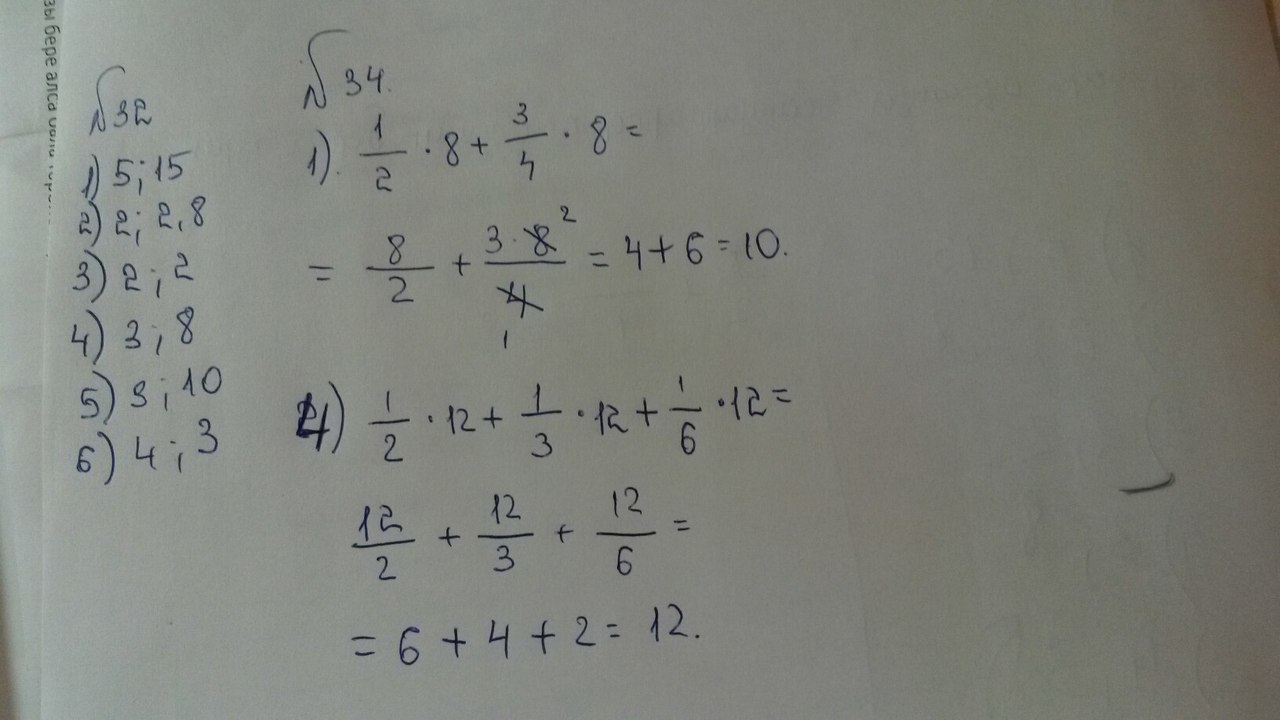 зы бере алса
№32
1) 5; 15
2) 2; 2,8
3) 2; 2
4) 3; 8
5) 3; 10
6) 4; 3
№ 34.
1). 1/2 · 8 + 3/4 · 8 =
= 8/2 + 3 · 8 2/4 1 = 4 + 6 = 10.
4) 1/2 · 12 + 1/3 · 12 + 1/6 · 12 =
12/2 + 12/3 + 12/6 =
= 6 + 4 + 2 = 12.